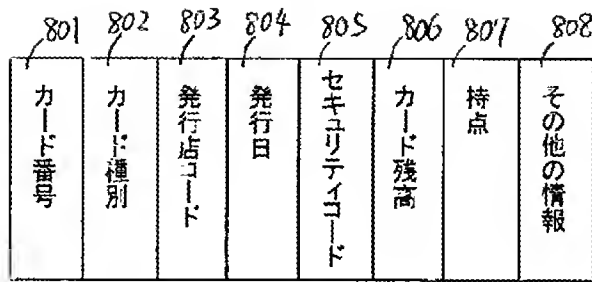 801 802 803 804 805 806 807 808
カード番号
カード種別
発行店コード
発行日
セキュリティコード
カード残高
持点
その他の情報